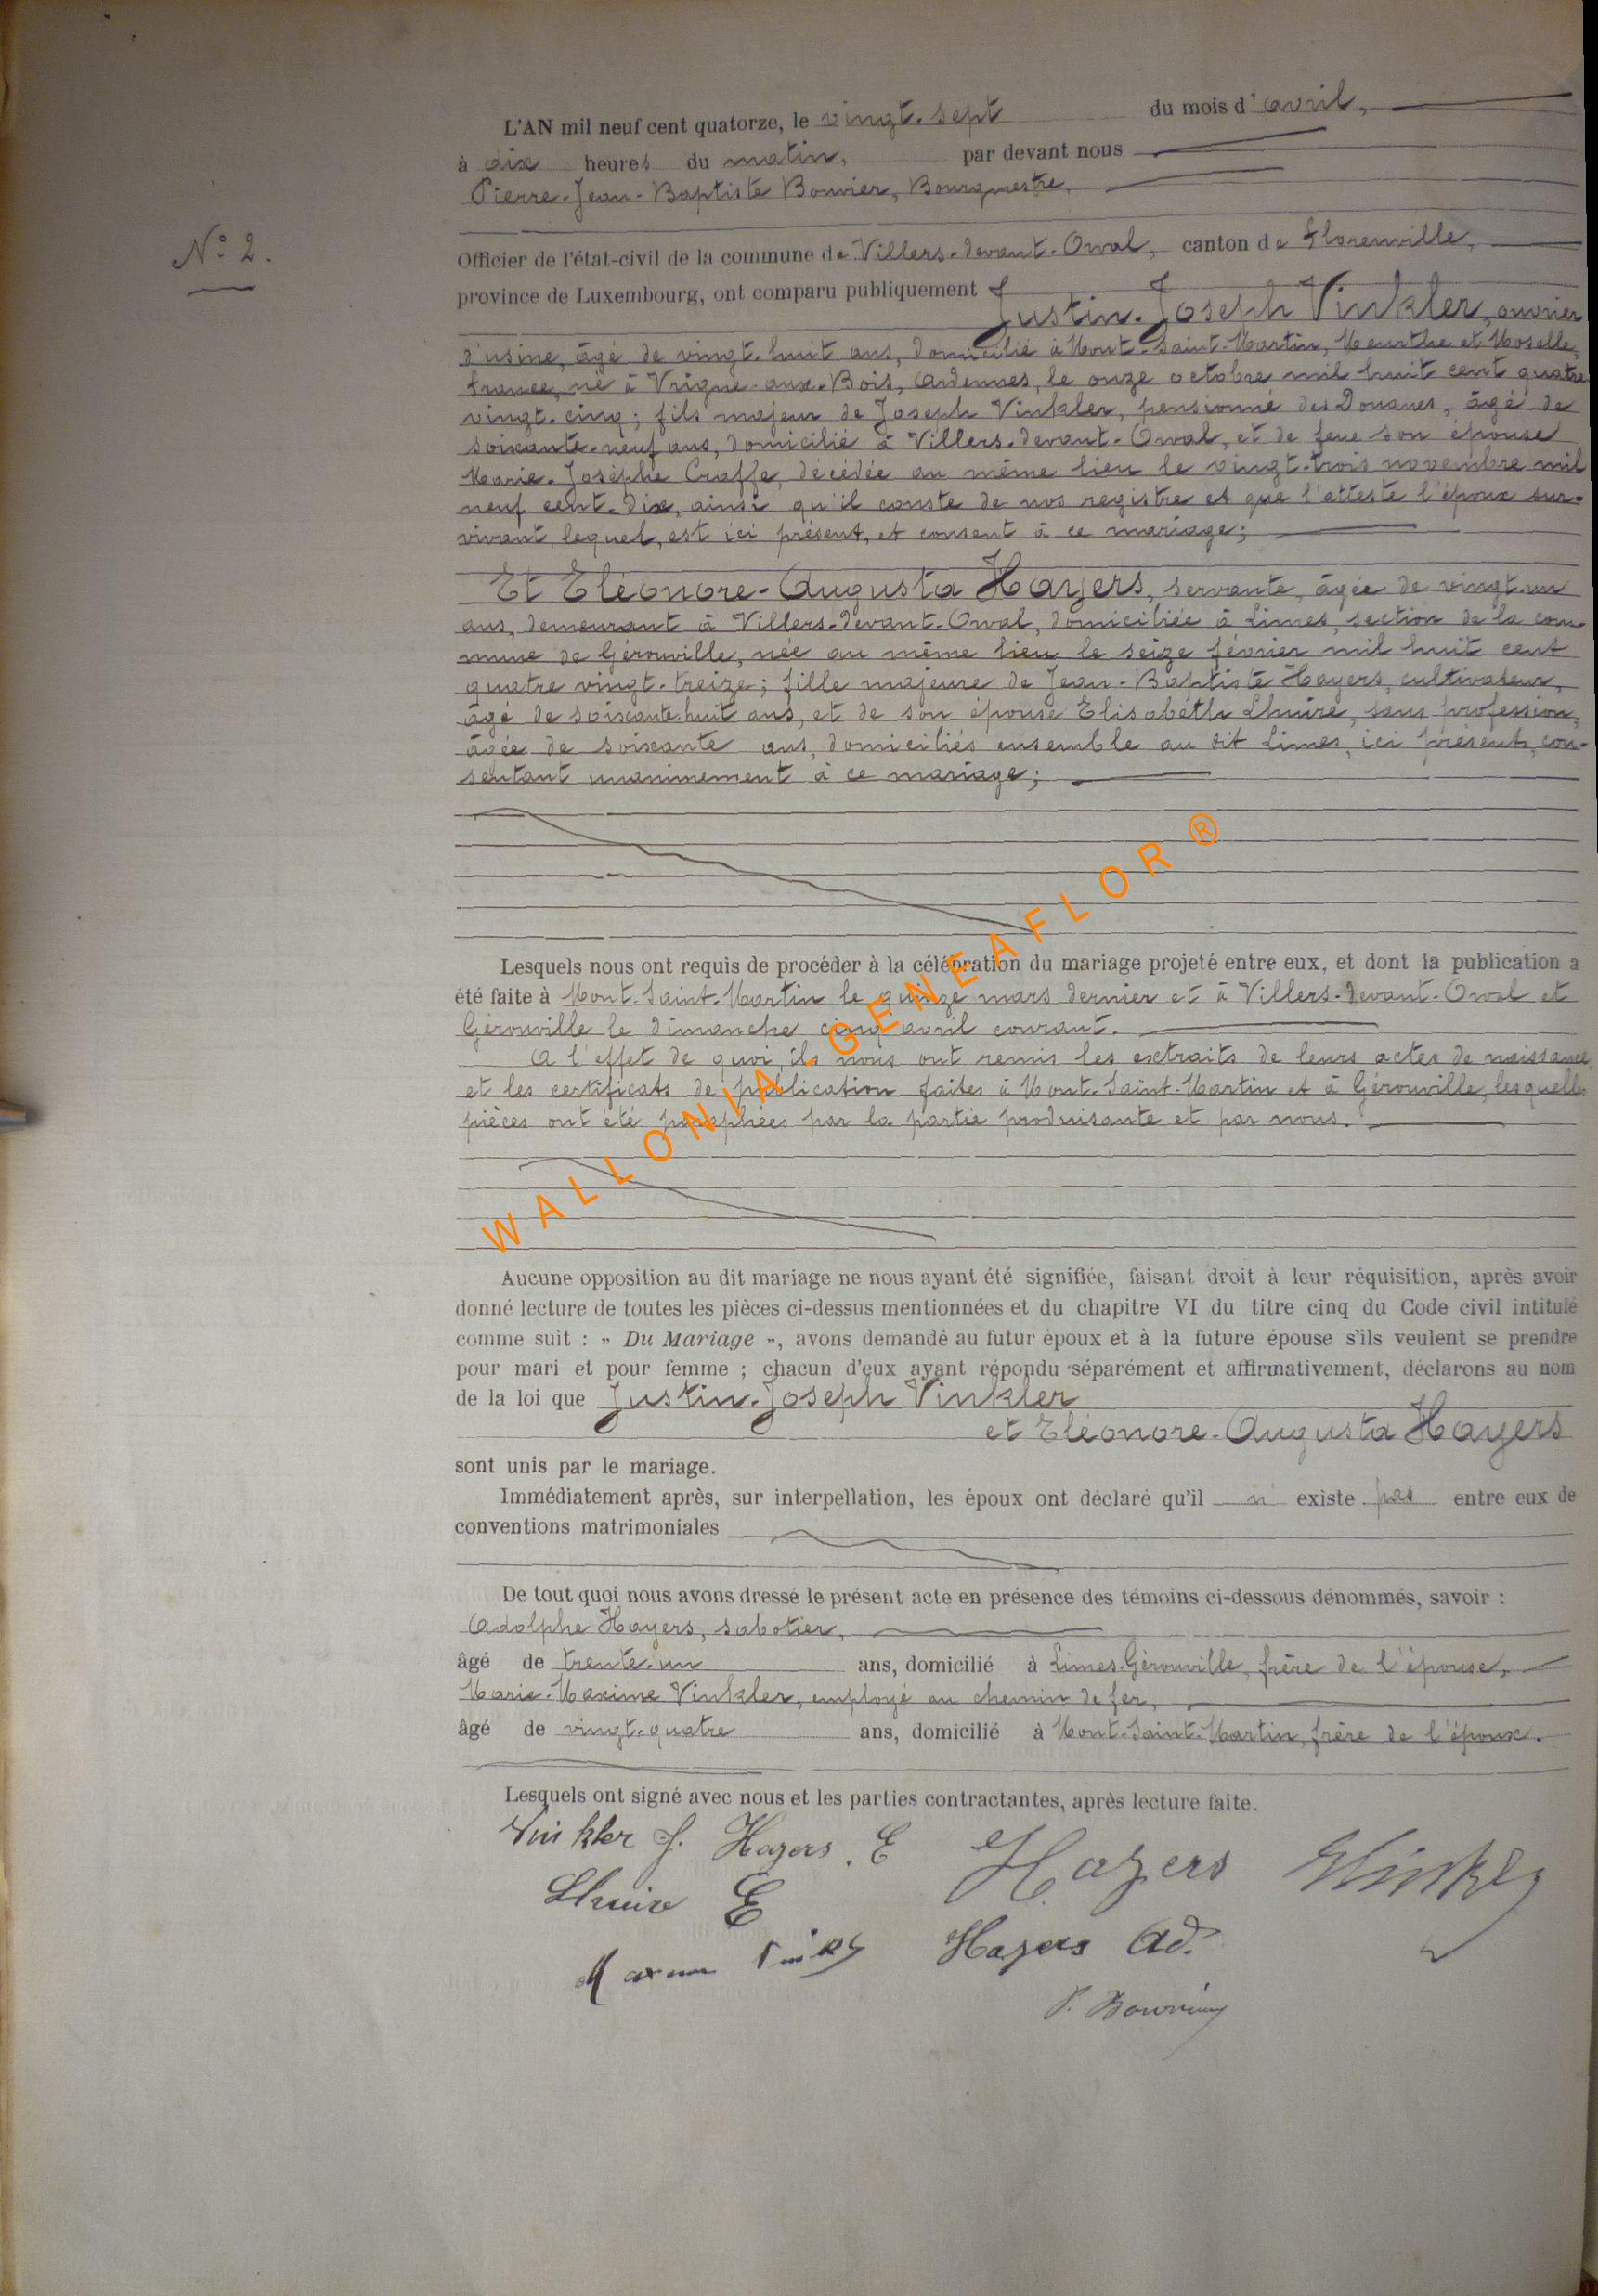 N° 2.
L'AN mil neuf cent quatorze, le vingt-sept du mois d'avril,
à dix heures du matin, par devant nous
Pierre-Jean-Baptiste Bouvier, Bourgmestre,
Officier de l'état-civil de la commune de Villers-devant-Orval, canton de Florenville,
province de Luxembourg, ont comparu publiquement
Justin-Joseph Vinkler, ouvrier
d'usine, âgé de vingt-huit ans, domicilié à Mont-Saint-Martin, Meurthe et Moselle,
France, né à Vrigne-aux-Bois, Ardennes, le onze octobre mil huit cent quatre
vingt-cinq; fils majeur de Joseph Vinkler, pensionné des Douanes, âgé de
soixante-neuf ans, domicilié à Villers-devant-Orval, et de feue son épouse
Marie-Josèphe Craffe, décédée au même lieu le vingt-trois novembre mil
neuf cent-dix, ainsi qu'il conste de nos registre et que l'atteste l'époux sur-
vivant, lequel, est ici présent, et consent à ce mariage;
Et Eléonore-Augusta Hayers, servante, âgée de vingt-un
ans, demeurant à Villers-devant-Orval, domiciliée à Limes, section de la com-
mune de Gérouville, née au même lieu le seize février mil huit cent
quatre vingt-treize; fille majeure de Jean-Baptiste Hayers, cultivateur,
âgé de soixante-huit ans, et de son épouse Elisabeth Lhuire, sans profession,
âgée de soixante ans, domiciliés ensemble au dit Limes, ici présents, con-
sentant unanimement à ce mariage;
Lesquels nous ont requis de procéder à la célébration du mariage projeté entre eux, et dont la publication a
été faite à Mont-Saint-Martin le quinze mars dernier et à Villers-devant-Orval et
Gérouville le dimanche cinq avril courant.
A l'effet de quoi, ils nous ont remis les extraits de leurs actes de naissance,
et les certificats de publication faites à Mont-Saint-Martin et à Gérouville, lesquelles
pièces ont été paraphées par la partie produisante et par nous.
WALLONIA-GENEAFLOR ®
Aucune opposition au dit mariage ne nous ayant été signifiée, faisant droit à leur réquisition, après avoir
donné lecture de toutes les pièces ci-dessus mentionnées et du chapitre VI du titre cinq du Code civil intitulé
comme suit : „ Du Mariage „, avons demandé au futur époux et à la future épouse s'ils veulent se prendre
pour mari et pour femme ; chacun d'eux ayant répondu séparément et affirmativement, déclarons au nom
de la loi que Justin-Joseph Vinkler
et Eléonore-Augusta Hayers
sont unis par le mariage.
Immédiatement après, sur interpellation, les époux ont déclaré qu'il n' existe pas entre eux de
conventions matrimoniales
De tout quoi nous avons dressé le présent acte en présence des témoins ci-dessous dénommés, savoir :
Adolphe Hayers, sabotier,
âgé de trente-un ans, domicilié à Limes-Gérouville, frère de l'épouse,
Marie-Maxime Vinkler, employé au chemin de fer,
âgé de vingt-quatre ans, domicilié à Mont-Saint-Martin, frère de l'époux.
Lesquels ont signé avec nous et les parties contractantes, après lecture faite.
Vinkler J. Hayers. E Hayers Vinkler
Lhuire E
Hayers Ad.
P. Bouvier